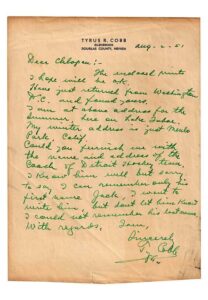 TYRUS R. COBB
GLENBROOK
DOUGLAS COUNTY, NEVADA
Aug. 2. 51
Dear Chlopen :-
The enclosed prints
I hope will be o.k.
Have just returned from Washington
D.C. and found yours.
I am at above address for the
summer, here on Lake Tahoe.
My winter address is just Menlo
Park, Calif.
Could you furnish me with
the name and address of the
Coach of Detroit Hockey team.
I know him well but sorry
to say I can remember only his
first name Jack, I want to
write him, but dont let him know
I could not remember his last name.
With regards. I am,
Sincerely
Ty Cobb